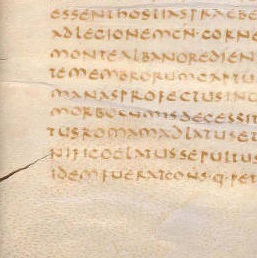 ESSENTHOSTIASPRAEBE
ADLEGIONEMCN·CORNE
MONTEALBANOREDIEN
TEMEMBRORUMCAPTU
MANASPROFECTUSINC
MORBOCUMISDECESSIT
TUSROMAMADLATUSET
NIFICOELATUSSEPULTUS
IDEMFUERATCONS·Q·PET